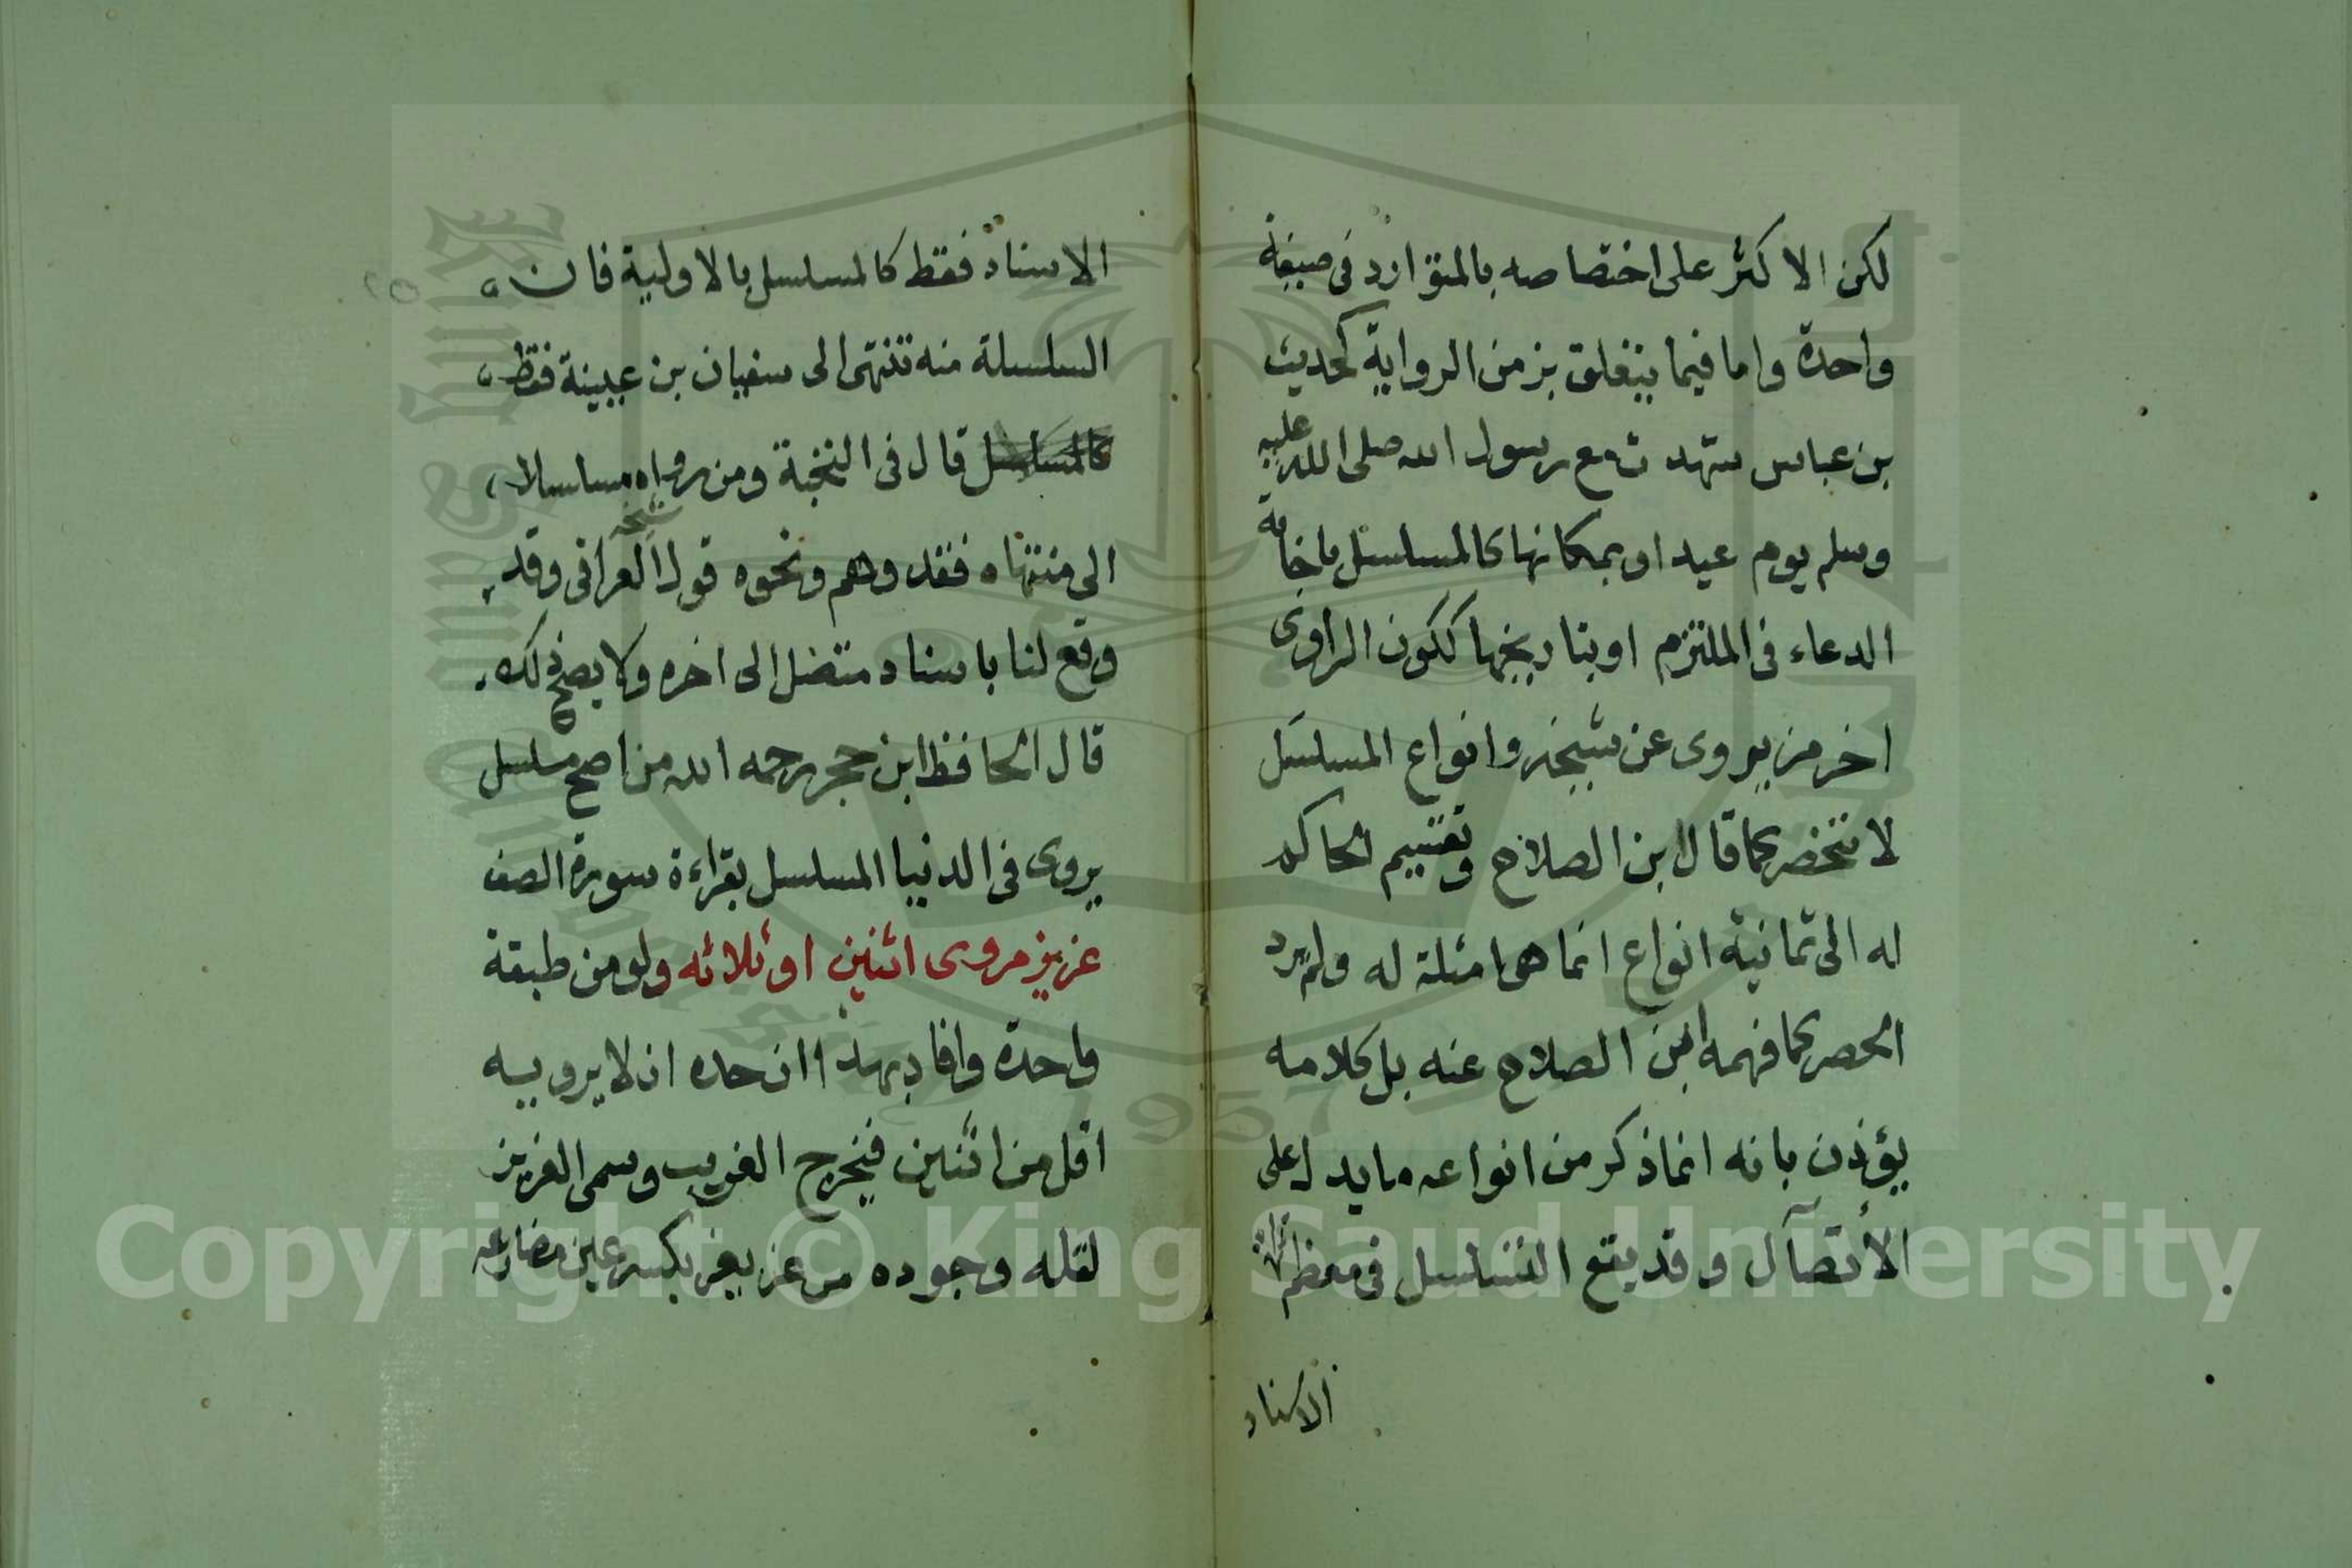 لكن الاكثر على اختصاصه بالمتوارد فى صيغة
واحدة واما فيما يتعلق بزمن الرواية كحديث
بن عباس شهدت مع رسول الله صلى الله عليه
وسلم يوم عيد او بمكانها كالمسلسل باجابة
الدعاء فى الملتزم او بتاريخها ككون الراوى
اخر من يروى عن شيخه وانواع المسلسل
لا تنحصر كما قال ابن الصلاح وتقسيم الحاكم
له الى ثمانية انواع انما هى امثلة له ولم يرد
الحصر كما فهمه ابن الصلاح عنه بل كلامه
يؤذن بانه انما ذكر من انواعه ما يدل على
الاتصال وقد يقع التسلسل فى معظم
الاسناد
الاسناد فقط كالمسلسل بالاولية فان
السلسلة منه تنتهى الى سفيان بن عيينة فقط
كالمسلسل قال فى النخبة ومن رواه مسلسلا
الى منتهاه فقد وهم ونحوه قول شيخه العراقى وقد
وقع لنا باسناد متصل الى اخره ولا يصح ذلك
قال الحافظ ابن حجر رحمه الله من اصح مسلسل
يروى فى الدنيا المسلسل بقراءة سورة الصف
عزيز مروى اثنين او ثلاثه ولو من طبقة
واحدة وافاد بهذا ان حده ان لا يرويه
اقل من اثنين فيخرج الغريب وسمى العزيز
لقله وجوده من عز يعز بكسر عين مضارعه
Copyright © King Saud University
1957